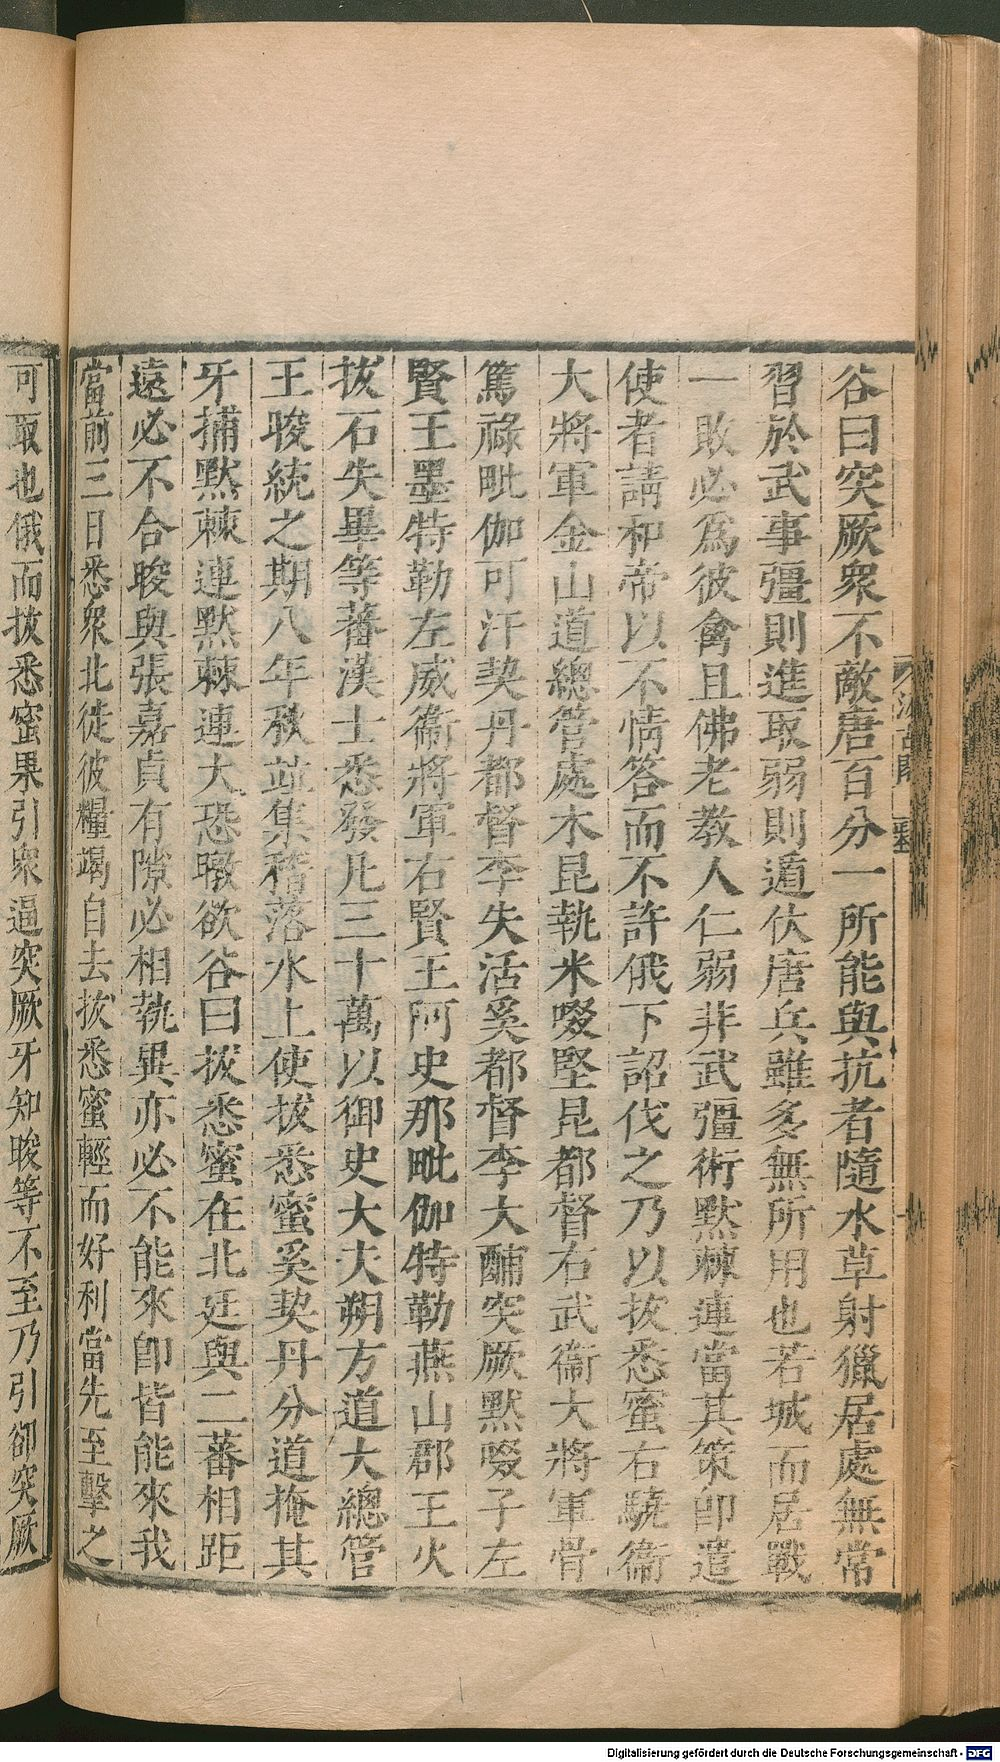 谷曰突厥衆不敵唐百分一所能與抗者隨水草射獵居處無常
習於武事彊則進取弱則遁伏唐兵雖多無所用也若城而居戰
一敗必爲彼禽且佛老敎人仁弱非武彊術黙棘連當其策卽遣
使者請和帝以不情答而不許俄下詔伐之乃以拔悉蜜右驍衞
大將軍金山道總管處木昆執米啜堅昆都督右武衞大將軍骨
篤祿毗伽可汗契丹都督李失活奚都督李大酺突厥黙啜子左
賢王墨特勒左威衞將軍右賢王阿史那毗伽特勒燕山郡王火
拔石失畢等蕃漢士悉發凡三十萬以御史大夫朔方道大總管
王晙統之期八年秋並集稽落水上使拔悉蜜奚契丹分道掩其
牙捕黙棘連黙棘連大恐暾欲谷曰拔悉蜜在北廷與二蕃相距
遠必不合晙與張嘉貞有隙必相執異亦必不能來卽皆能來我
當前三日悉衆北徙彼糧竭自去拔悉蜜輕而好利當先至擊之
可取也俄而拔悉蜜果引衆逼突厥牙知晙等不至乃引卻突厥
Digitalisierung gefördert durch die Deutsche Forschungsgemeinschaft - DFG